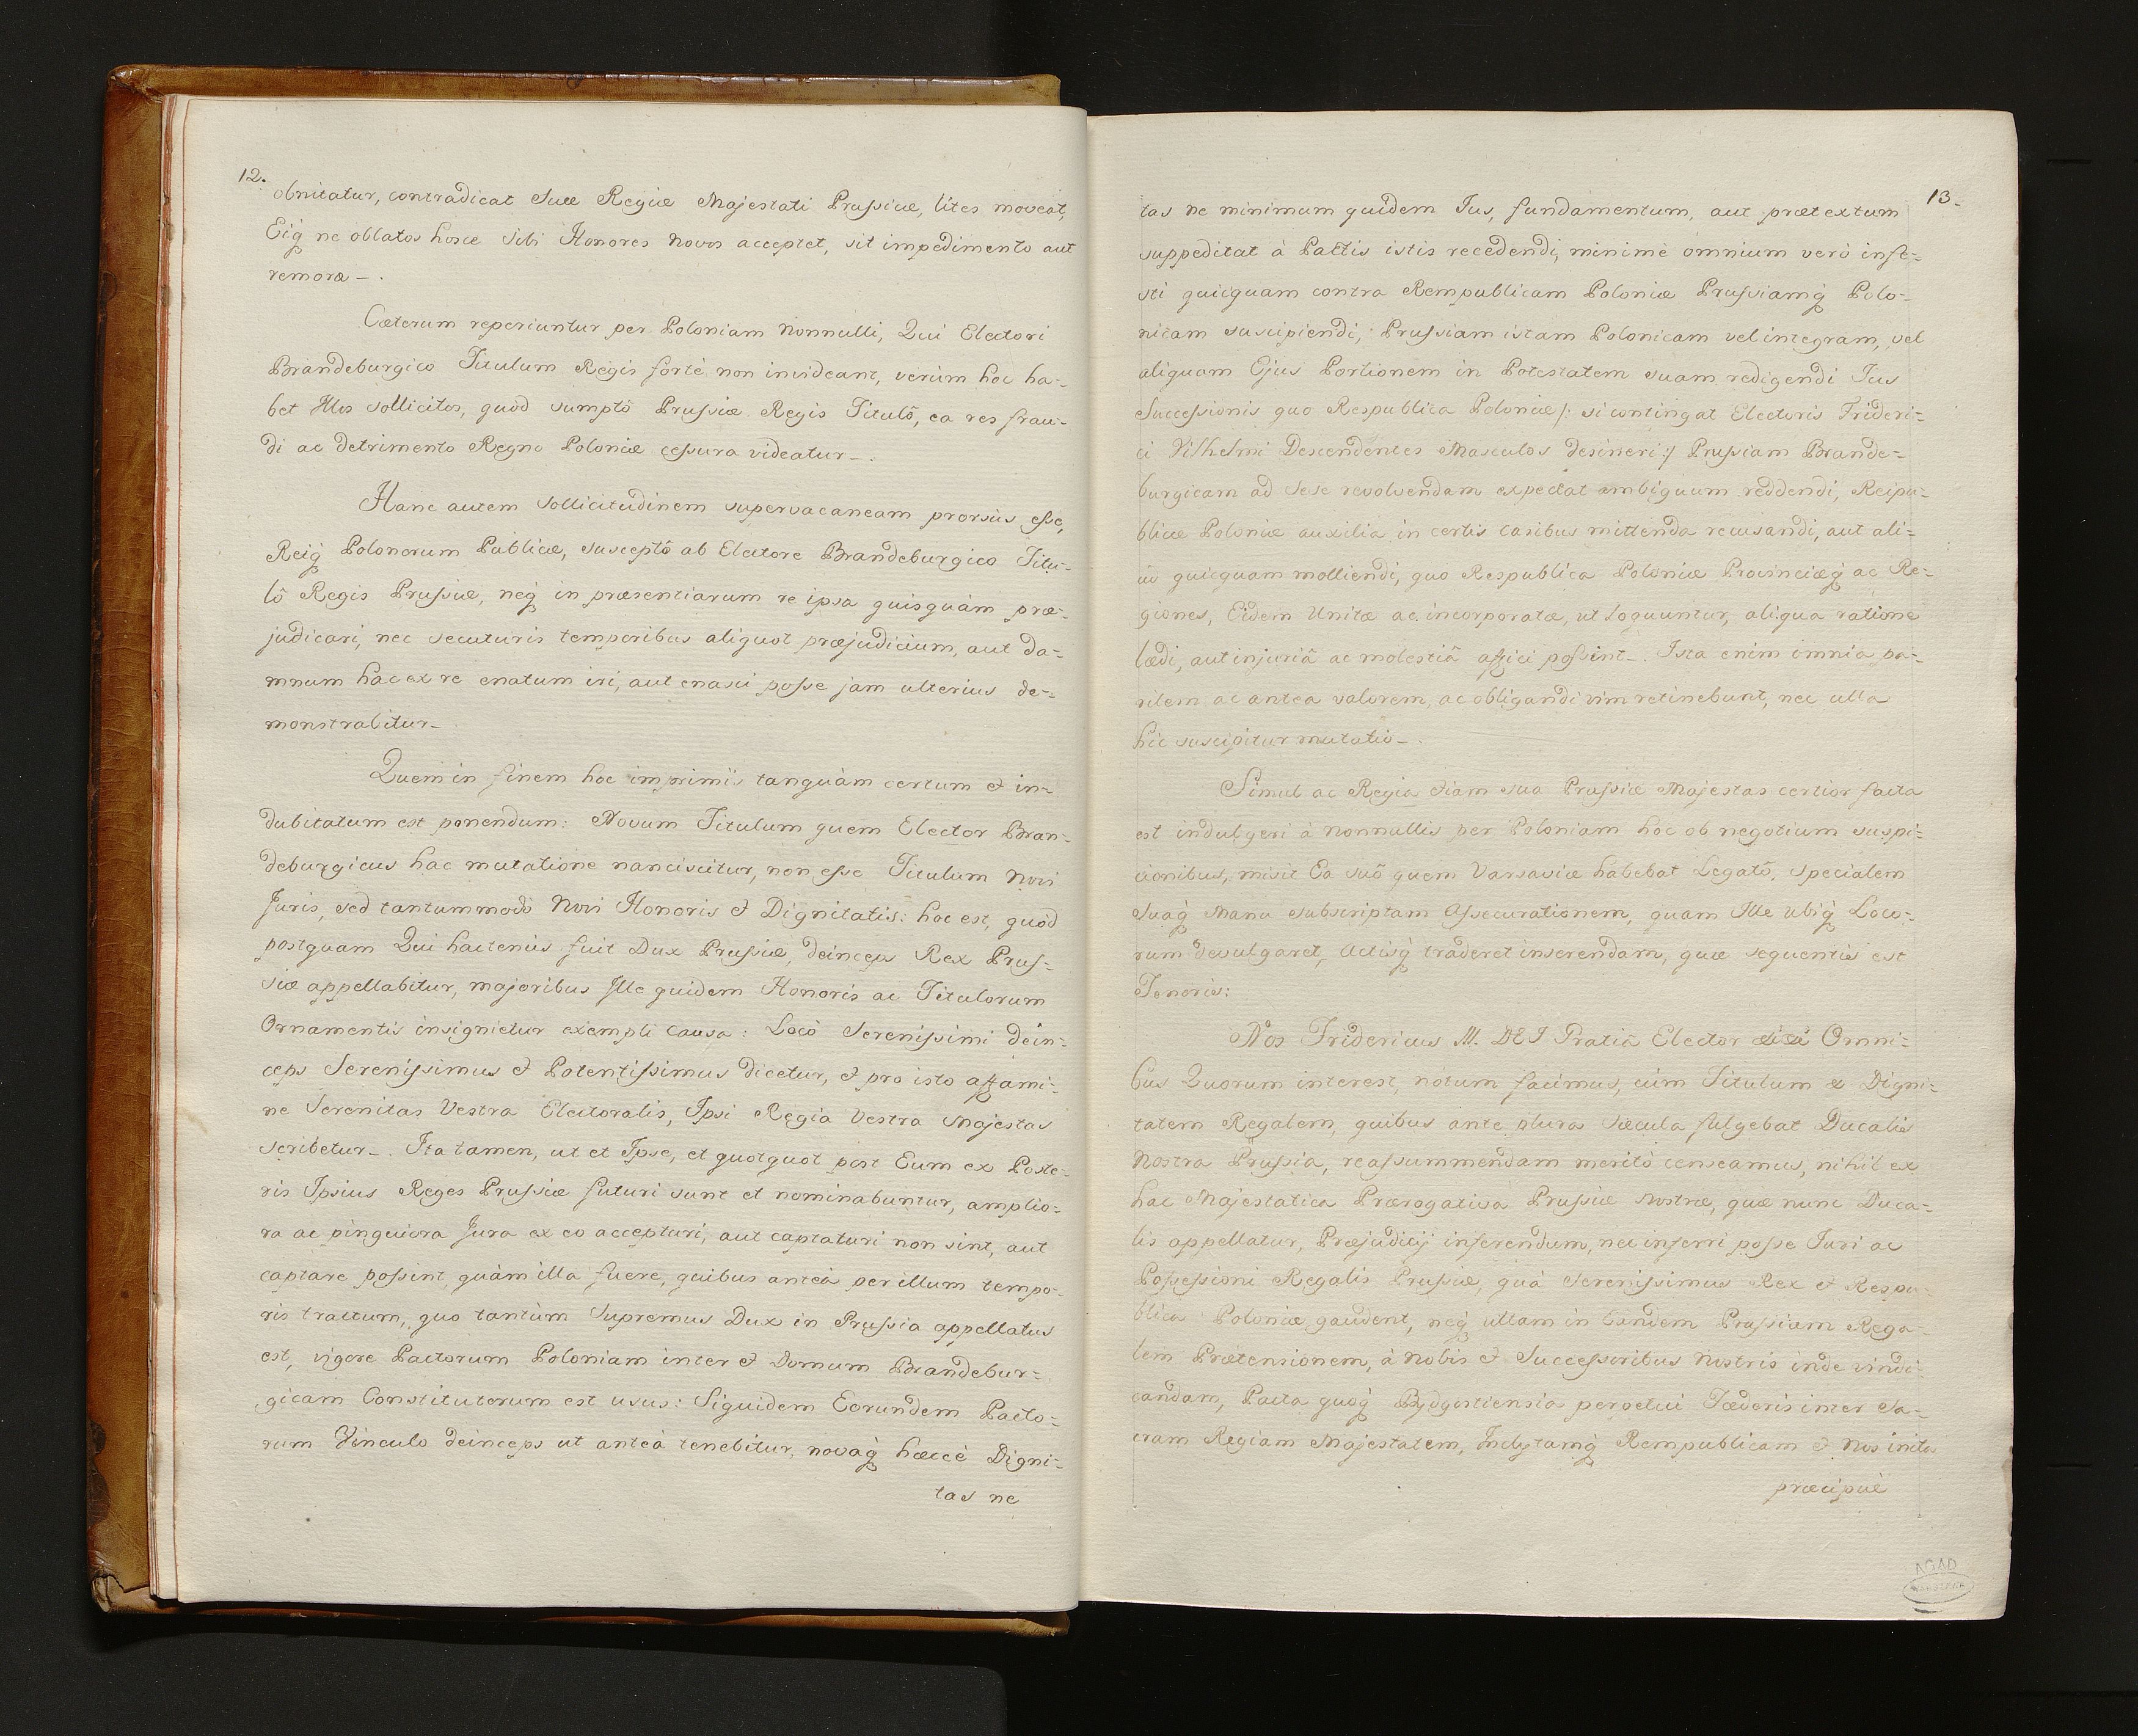 12.
obnitatur, contradicat Suæ Regiæ Majestati Prussiæ, lites moveat,
Eiq́ ne oblatos hosce Sibi Honores novos acceptet, sit impedimento aut
remoræ –.
Cæterum reperiuntur per Poloniam nonnulli, Qui Electori
Brandeburgico Titulum Regis fortè non invideant, verùm hoc ha-
bet Illos sollicitos, quòd sumptô Prussiæ Regis Titulô, ea res frau-
di ac detrimento Regno Poloniæ cessura videatur –.
Hanc autem Sollicitudinem supervacaneam prorsùs esse,
Reiq́ Polonorum Publicæ, susceptô ab Electore Brandeburgico Titu-
lô Regis Prussiæ, neq́ in præsentiarum re ipsa quisquàm præ-
judicari, nec secuturis temporibus aliquot præjudicium, aut da-
mnum hac ex re enatum iri, aut enasci posse jam ulterius de-
monstrabitur –
Quem in finem hoc imprimis tanquàm certum & in-
dubitatum est ponendum: Novum Titulum quem Elector Bran-
deburgicus hac mutatione nanciscitur, non esse Titulum Novi
Juris, sed tantummodò Novi Honoris & Dignitatis: hoc est, quòd
postquam Qui hactenùs fuit Dux Prussiæ, deinceps Rex Prus-
siæ appellabitur, majoribus Ille quidem Honoris ac Titulorum
Ornamentis insignietur exempli causa: Locô Serenissimi dein-
ceps Serenissimus & Potentissimus dicetur, & pro isto affami-
ne Serenitas Vestra Electoralis, Ipsi Regia Vestra Majestas
scribetur –. Ita tamen, ut et Ipse, et quotquot post Eum ex Poste-
ris Ipsius Reges Prussiæ futuri sunt et nominabuntur, amplio-
ra ac pinguiora Jura ex eo accepturi, aut captaturi non sint, aut
captare possint, quàm illa fuere, quibus anteà per illum tempo-
ris tractum, quo tantùm Supremus Dux in Prussia appellatus
est, vigore Pactorum Poloniam inter & Domum Brandebur-
gicam Constitutorum est usus: Siquidem Eorundem Pacto-
rum Vinculo deinceps ut anteà tenebitur, novaq́ hæcce Digni-
tas ne
13.
tas ne minimum quidem Jus, fundamentum, aut prætextum
suppeditat à Pactis istis recedendi, minimè omnium verò infe-
sti quicquam contra Rempublicam Poloniæ Prussiamq́ Polo-
nicam suscipiendi; Prussiam istam Polonicam vel integram, vel
aliquam Ejus Portionem in Potestatem suam redigendi Jus
Successionis quo Respublica Poloniæ /: si contingat Electoris Frideri-
ci Vilhelmi Descendentes Masculos desineri :/ Prussiam Brande-
burgicam ad sese revolvendam expectat ambiguum reddendi, Reipu-
blicæ Poloniæ auxilia in certis casibus mittenda recusandi, aut ali-
us quicquam molliendi, quo Respublica Poloniæ Provinciæq́ ac Re-
giones, Eidem Unitæ ac incorporatæ, ut loquuntur, aliqua ratione
lædi, aut injuriâ ac molestiâ affici possint –. Ista enim omnia pa-
ritem ac antea valorem, ac obligandi vim retinebunt, nec ulla
hic suscipitur mutatio –.
Simul ac Regia etiam sua Prussiæ Majestas certior facta
est indulgeri à nonnullis per Poloniam hoc ob negotium suspi-
cionibus, misit Ea suô quem Varsaviæ habebat Legatô, specialem
Suaq́ Manu subscriptam Assecurationem, quam Ille ubiq́ Loco-
rum devulgaret, Actisq́ traderet inserendam, quæ sequentis est
Tenoris:
Nos Fridericus III. DEI Gratiâ Elector Omni-
bus Quorum interest, notum facimus, cùm Titulum & Digni-
tatem Regalem, quibus ante plura Sæcula fulgebat Ducalis
Nostra Prussia, reassummendam meritò censeamus, nihil ex
hac Majestatica Prærogativa Prussiæ Nostræ, quæ nunc Duca-
lis appellatur, Præjudicij inferendum, nec inferri posse Juri ac
Possessioni Regalis Prussiæ, quâ Serenissimus Rex & Respu-
blica Poloniæ gaudent, neq́ ullam in Eandem Prussiam Rega-
lem Prætensionem, à Nobis & Successoribus Nostris inde vindi-
candam, Pacta quoq́ Bydgostiensia perpetui Fæderis inter Sa-
cram Regiam Majestatem, Inclytamq́ Rempublicam & Nos initos
præcipuè
AGAD
WARSZAWA